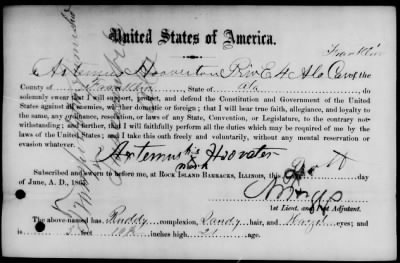 Franklin
United States of America.
I, Artemus Hooverton Priv E 4 Ala Cav. of the
County of Franklin, State of Ala do
solemnly swear that I will support, protect, and defend the Constitution and Government of the United
States against all enemies, whether domestic or foreign; that I will bear true faith, allegiance, and loyalty to
the same, any ordinance, resolution, or laws of any State, Convention, or Legislature, to the contrary not-
withstanding; and further, that I will faithfully perform all the duties which may be required of me by the
laws of the United States; and I take this oath freely and voluntarily, without any mental reservation or
evasion whatever.
Artemus his Hooverton
mark
Subscribed and sworn to before me, at Rock Island Barracks, Illinois, this day
of June, A. D., 186
1st Lieut. and Post Adjutant.
The above-named has Ruddy complexion, Sandy hair, and Hazel eyes; and
is 5 feet inches high 21